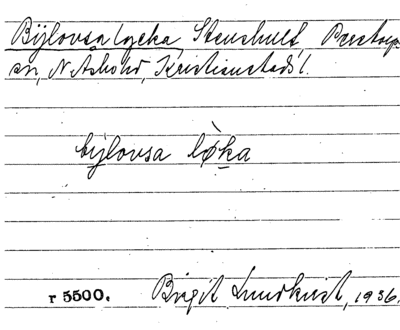 Bÿlovsa lycka, Stenshult, Perstorp
sn, N. Åsbo hd, Kristianstads l.
bÿlovsa lø̀ka
r 5500. Birgit Lundkvist, 1936.